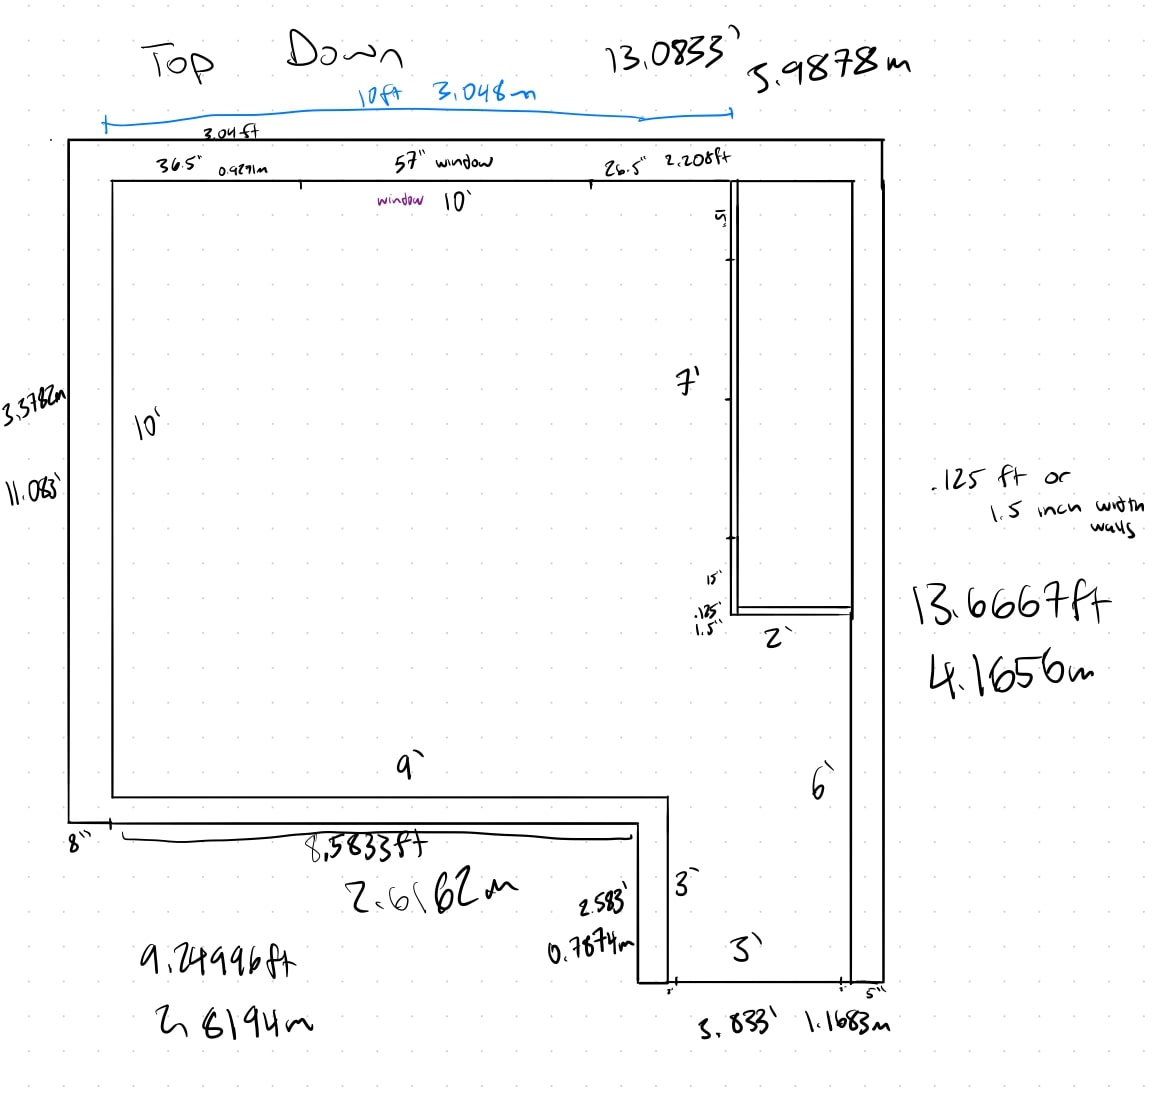 Top Down
13.0833'
3.9878m
10ft 3.048m
3.04ft
36.5" 0.9271m
57" window
26.5" 2.208ft
window 10'
7'
3.3782m
10'
11.083'
.125 ft or
1.5 inch width
walls
15'
.125'
1.5"
2'
13.6667ft
4.1656m
9'
6'
8"
8.5833ft
2.6162m
3'
2.583'
0.7874m
3'
9.24996ft
2.8194m
5"
3.833' 1.1683m